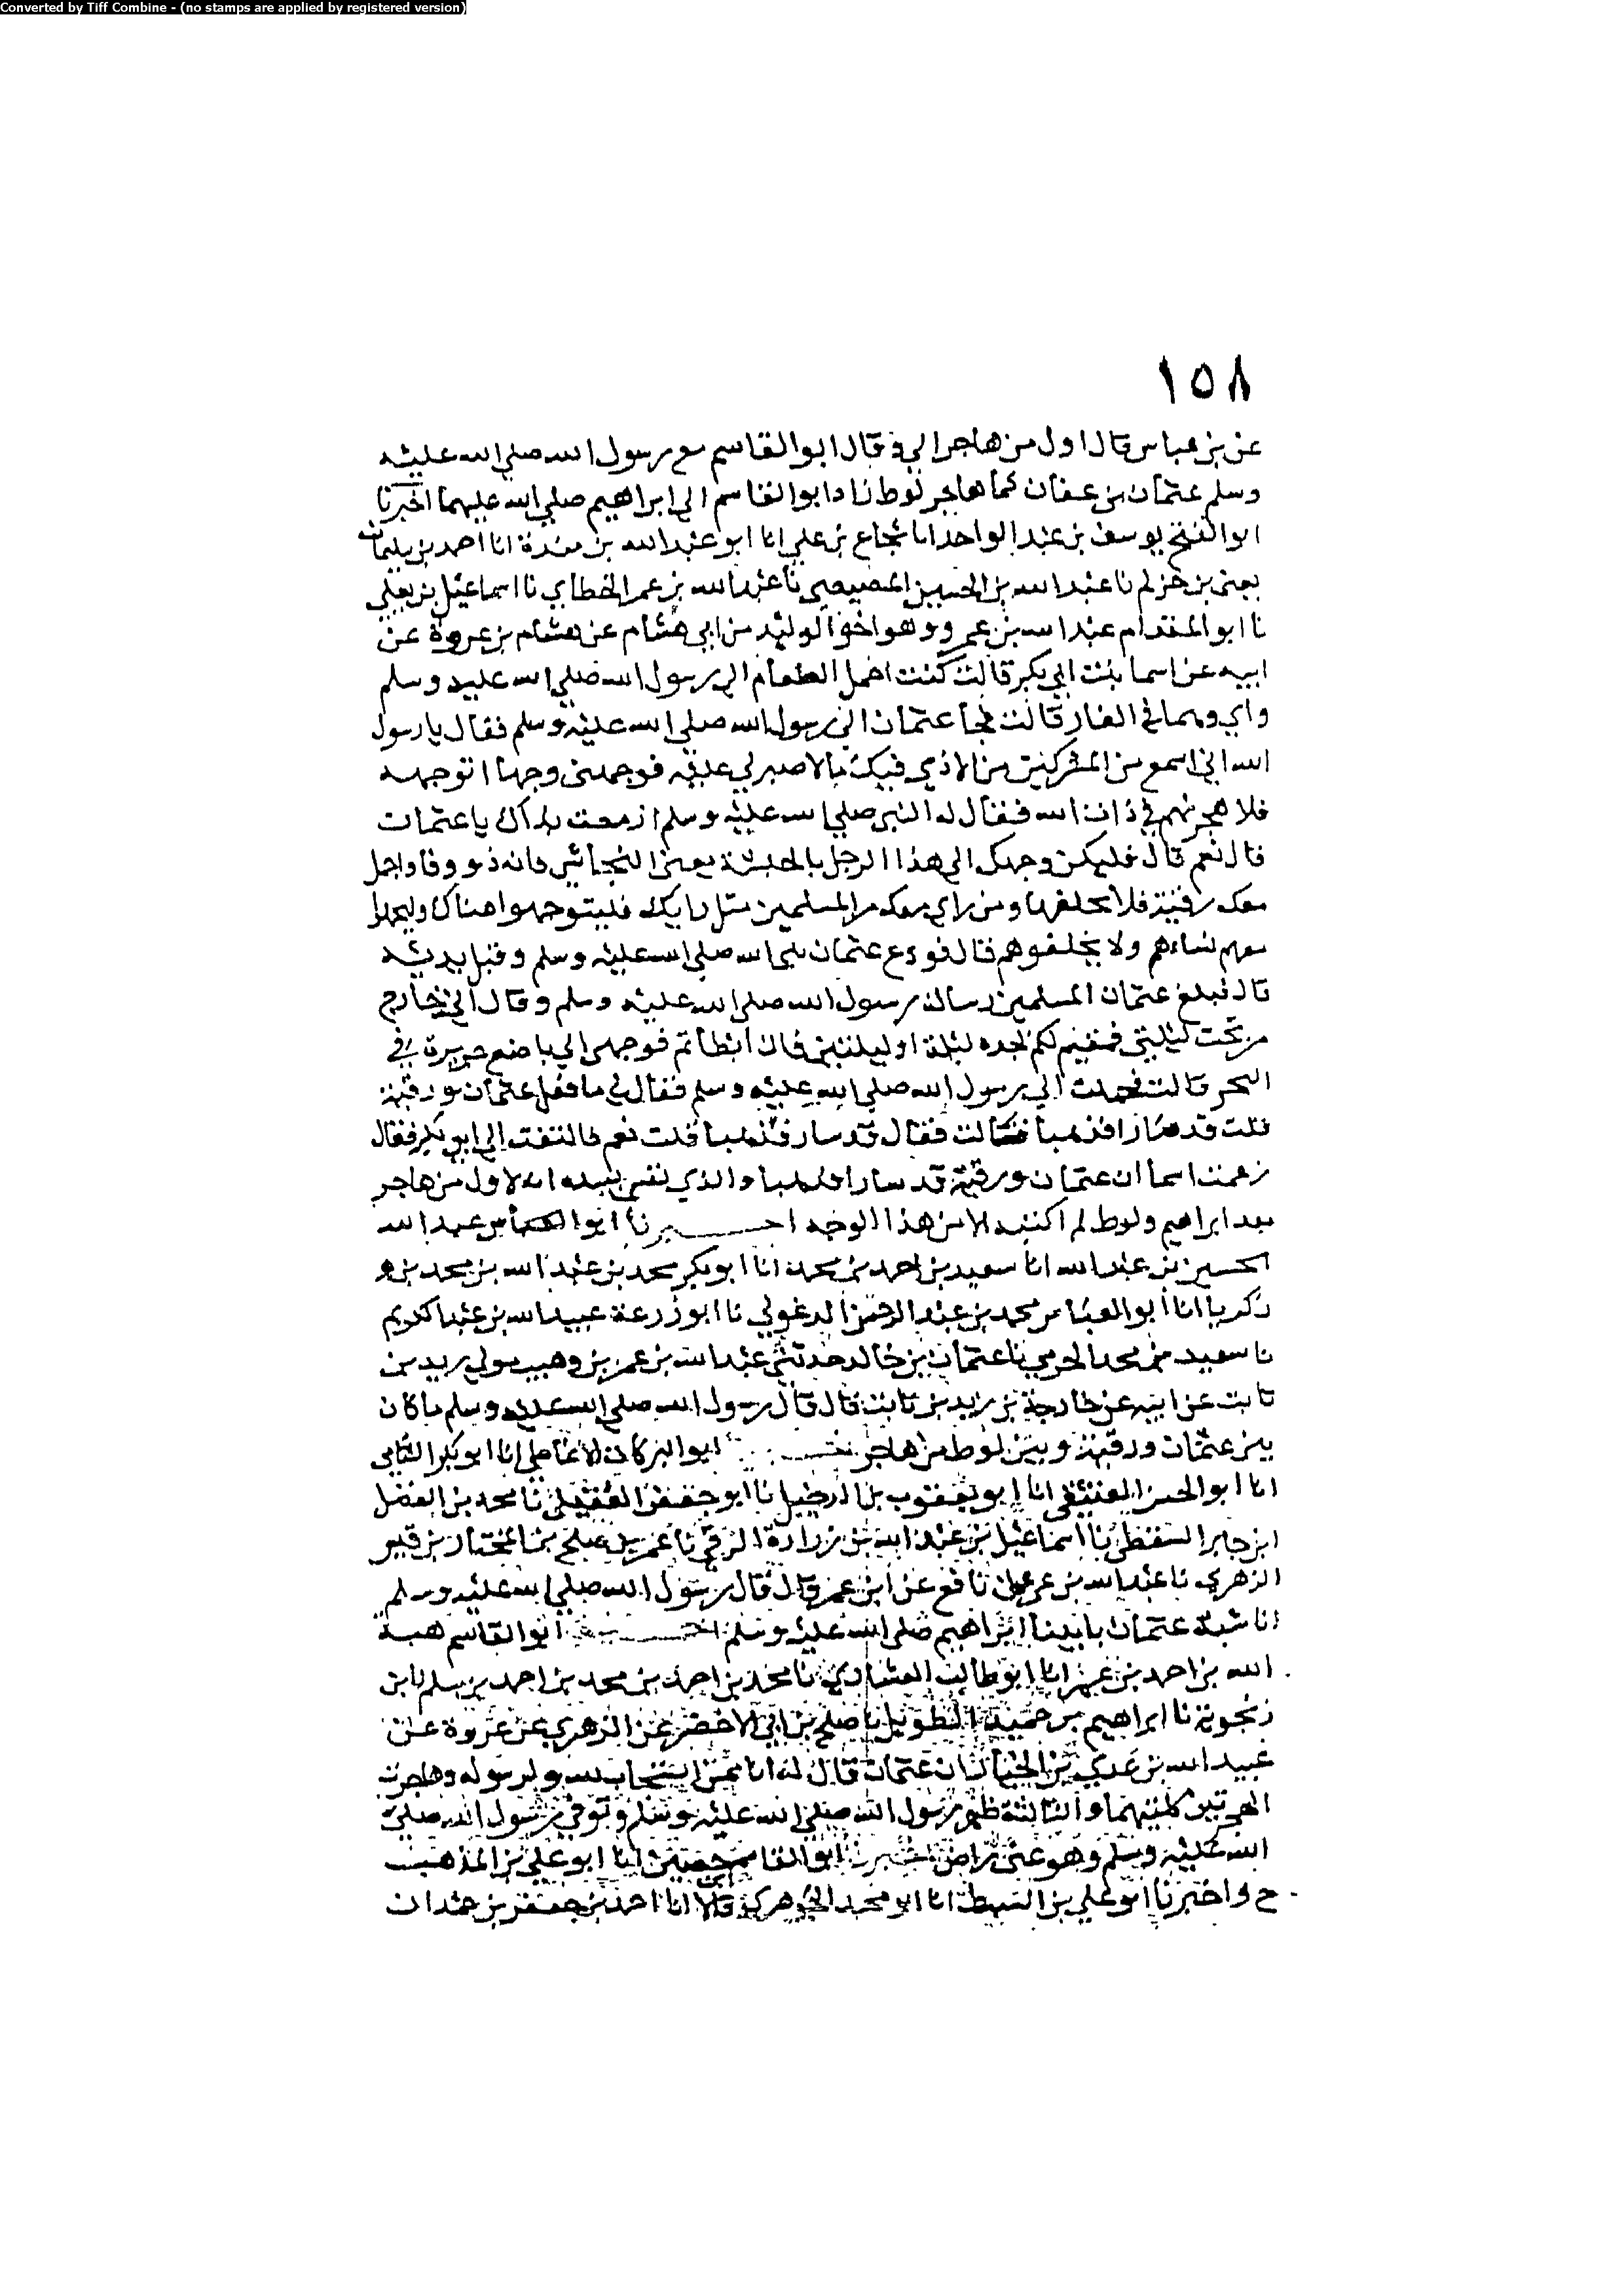 Converted by Tiff Combine - (no stamps are applied by registered version)
١٥٨
عن بن عباس قال اول من هاجر الى وقال ابو القاسم مع رسول الله صلى الله عليه
وسلم عثمان بن عفان كما هاجر لوط زاد ابو القاسم الى ابراهيم صلى الله عليهما اخبرنا
ابو الفتح يوسف بن عبد الواحد انا شجاع بن علي انا ابو عبد الله بن مندة انا احمد بن سليمان
يعني بن حزلم نا عبد الله بن الحسين المصيصي نا عبد الله بن عمر الخطابي نا اسماعيل بن يعلى
نا ابو المقدام عبد الله بن عمرو وهو اخو الوليد من ابي هشام عن هشام بن عروة عن
ابيه عن اسما بنت ابي بكر قالت كنت احمل الطعام الى رسول الله صلى الله عليه وسلم
وابي وهما في الغار قالت فجا عثمان الى رسول الله صلى الله عليه وسلم فقال يا رسول
الله اني اسمع من المشركين من الاذى فيك ما لا صبر لي عليه فوجهني وجها اتوجهه
فلاهجرنهم في ذات الله فقال له النبي صلى الله عليه وسلم ازمعت بذاك يا عثمان
قال نعم قال فليكن وجهك الى هذا الرجل بالحبشة يعني النجاشي فانه ذو وفا واحمل
معك رقية فلا تخلفها ومن راى معك من المسلمين مثل رايك فليتوجهوا هناك وليحملوا
معهم نساءهم ولا يخلفوهم قال فودع عثمان نبي الله صلى الله عليه وسلم وقبل يديه
قال فبلغ عثمان المسلمين رسالة رسول الله صلى الله عليه وسلم وقال اني خارج
من تحت ليلتي فمقيم لكم بجده ليلة او ليلتين فان ابطاتم فوجهي الى باضع جزيرة في
البحر قالت فحملت الى رسول الله صلى الله عليه وسلم فقال لي ما فعل عثمان ورقية
قلت قد سارا فذهبا فقالت فقال قد سار فذهبا قلت نعم فالتفت الى ابي بكر فقال
زعمت اسما ان عثمان ورقية قد سارا فذهبا والذي نفسي بيده انه لاول من هاجر
بعد ابراهيم ولوط لم اكتبه الا من هذا الوجه اخبرنا ابو العباس عبد الله
الحسين بن عبد الله انا سعيد بن احمد بن محمد انا ابو بكر محمد بن عبد الله بن محمد بن
زكريا انا ابو العباس محمد بن عبد الرحمن الدغولي نا ابو زرعة عبيد الله بن عبد الكريم
نا سعيد بن محمد الجرمي نا عثمان بن خالد حدثني عبد الله بن عمر بن وهيب مولى زيد بن
ثابت عن ابيه عن خارجة بن زيد بن ثابت قال قال رسول الله صلى الله عليه وسلم ما كان
بين عثمان ورقية وبين لوط من هاجر ابو البركات الانماطي انا ابو بكر الشامي
انا ابو الحسن العتيقي انا ابو يعقوب بن الدخيل نا ابو جعفر العقيلي نا محمد بن الفضل
ابن جابر السقطي نا اسماعيل بن عبد الله بن زرارة الرقي نا عمر بن صلح بن المختار بن قيس
الزهري نا عبد الله بن عمر عن نافع عن ابن عمر قال قال رسول الله صلى الله عليه وسلم
انا شبه عثمان بابينا ابراهيم صلى الله عليه وسلم ابو القاسم هبة
الله بن احمد بن عمر انا ابو طالب العشاري نا محمد بن احمد بن محمد بن احمد بن سلم نا بن
زنجويه نا ابراهيم بن حميد الطويل نا صلح بن ابي الاخضر عن الزهري عن عروة عن
عبيد الله بن عدي بن الخيار ان عثمان قال له انا ممن استجاب لله ولرسوله وهاجرت
الهجرتين كلتيهما والثالثة ظهر رسول الله صلى الله عليه وسلم وتوفي رسول الله صلى
الله عليه وسلم وهو عني راض اخبرنا ابو القاسم بن حصين انا ابو علي بن المذهب
ح واخبرنا ابو علي بن السبط انا ابو محمد الجوهري قالا انا احمد بن جعفر بن حمدان